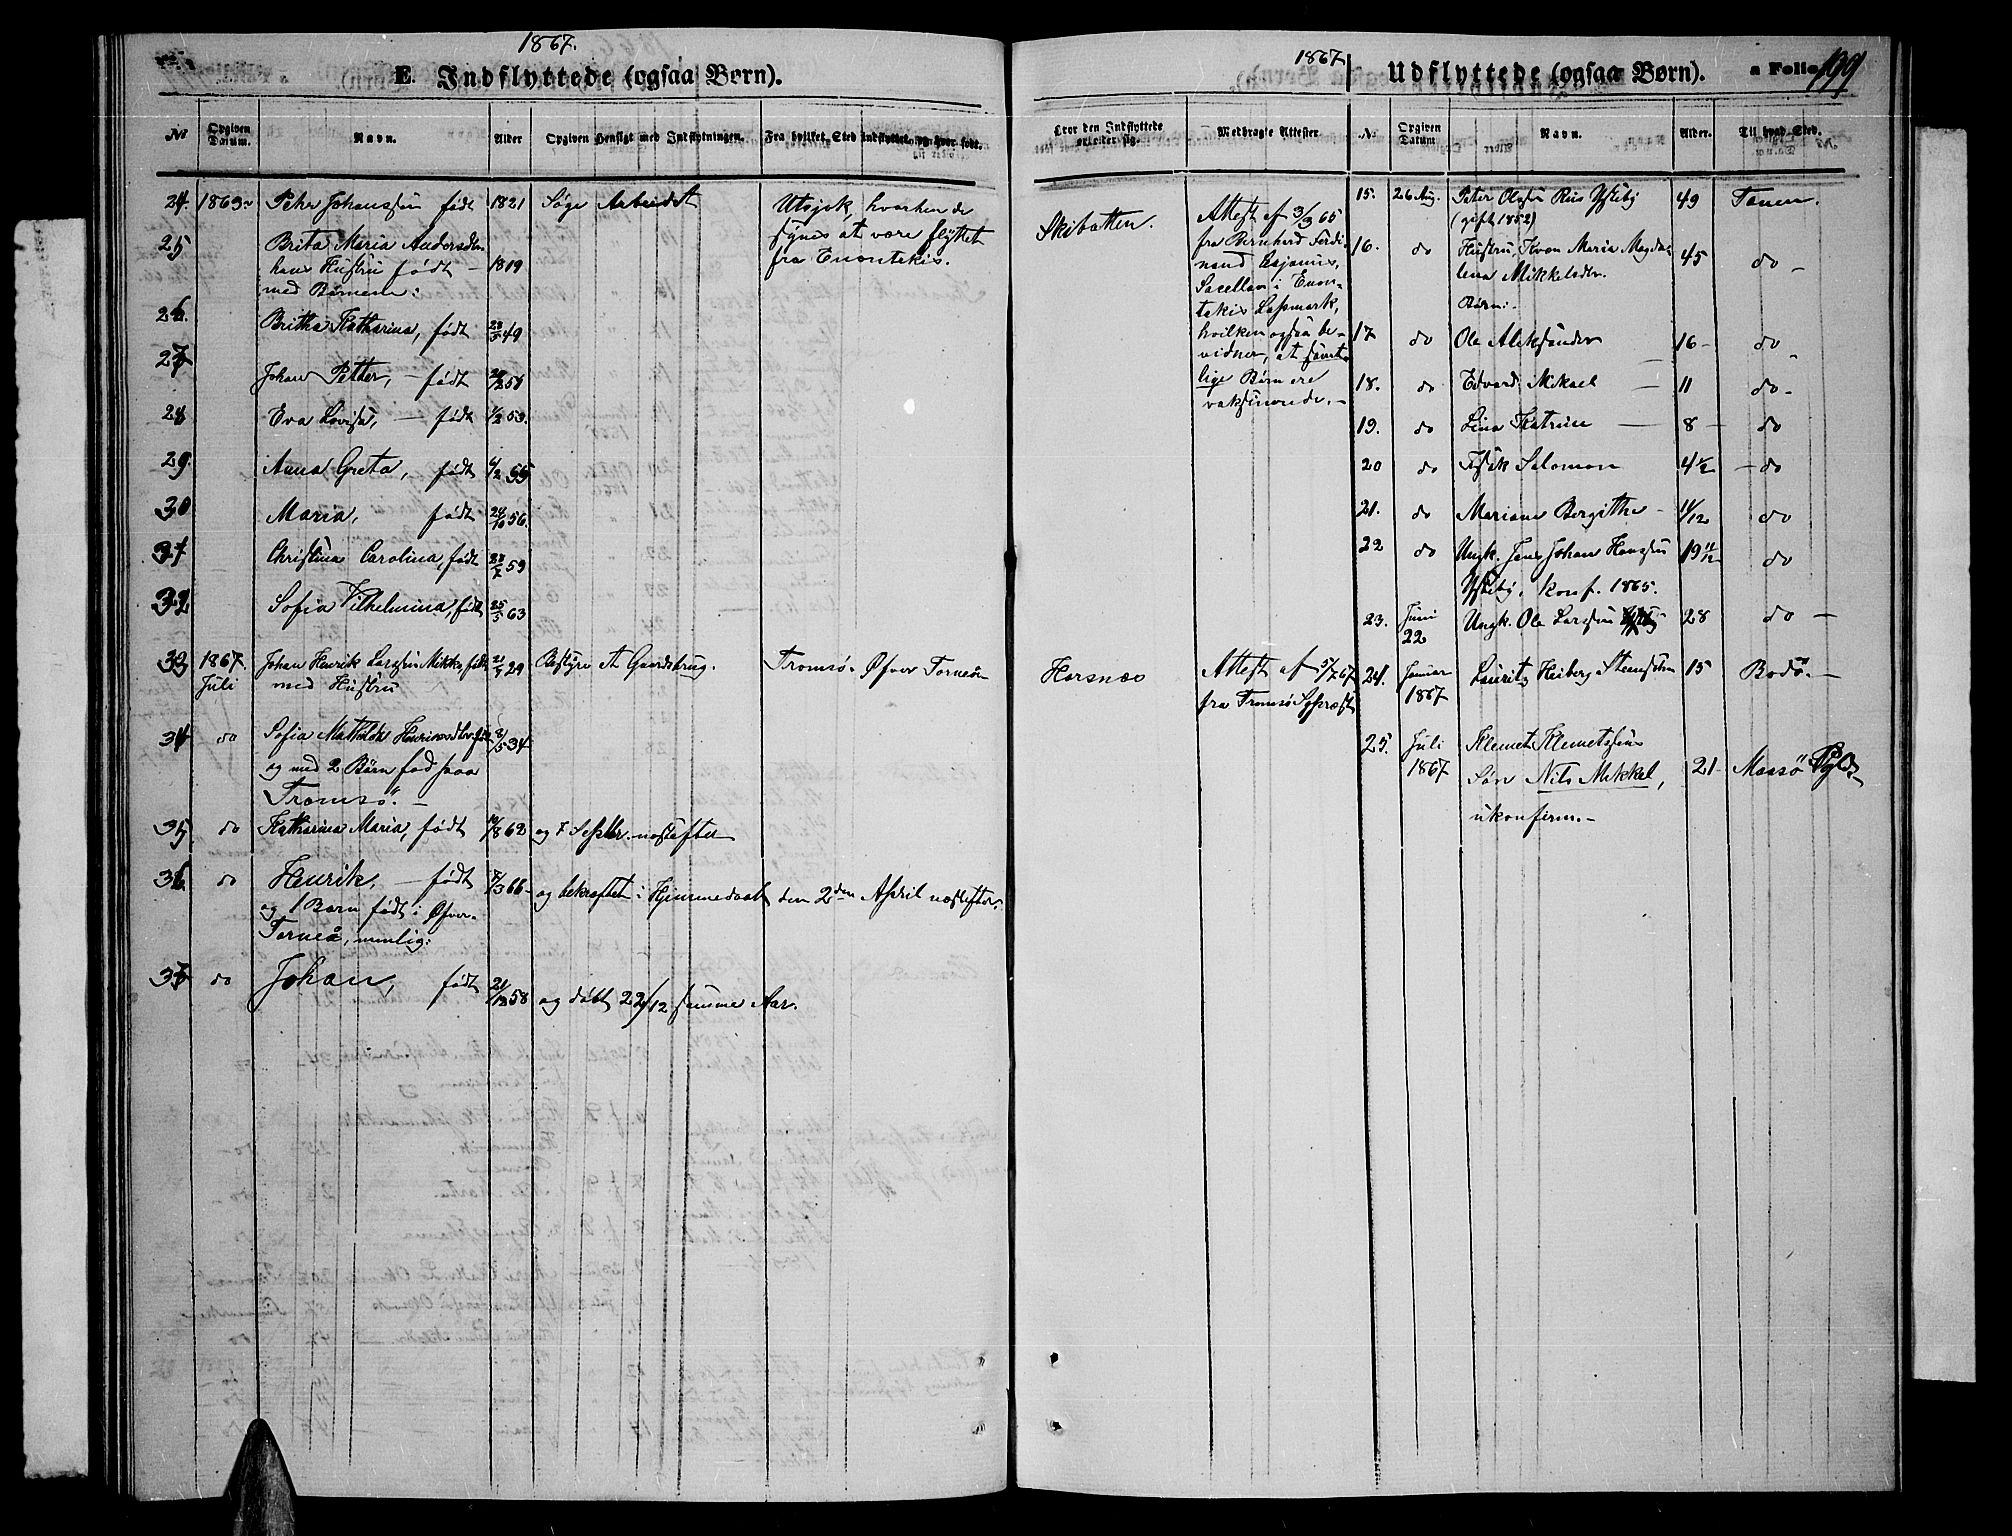 1867.
E. Indflyttede (ogsaa Børn).
No
Opgiven Datum.
Navn.
Alder
Opgiven Hensigt med Indflytningen.
Fra hvilket Sted Indflyttet, og hvor født.
24. 1863 Peter Johanssen født 1821 Søge Arbeidet Utsjok, hvorhen de
25 Brita Maria Andersdtr synes at være flyttet
hans Hustru født – 1819 fra Enontekis.
med Børnene:
26. Britha Katharina, født 49
27 Johan Petter, – født
28 Eva Lovisa, – født 1/2 53.
29. Anna Greta, født 55
30 Maria, født 56.
31 Christina Carolina, født 59
32 Sofia Vilhelmina, født 25/5 63
33 1867. Johan Henrik Larssen Mikko, født 29 Bestyre et Gaardsbrug. Tromsø. Øfver Torneå
Juli med Hustru
34 do Sofia Mathilda Henriksdtr 8/5 34
og med 2 Børn fød paa
Tromsø. –
35 do Katharina Maria, født 62 og 7 Septbr. næstefter
36 do Henrik, – født 66 – og bekræftet i Hjemmedaab den 2den April næstefter.
og 1 Barn født i Øfver-
Torneå, nemlig:
37 do Johan, født 21/12 58 og døbt 22/12 samme Aar.
1867
Udflyttede (ogsaa Børn).
a Folio 199
Hvor den Indflyttede opholder sig.
Medbragte Attester
No.
Opgiven Datum
Navn.
Alder.
Til hvad Sted.
Skibotten.
Attest af 3/3 65
fra Bernhard Ferdi-
nand
i Enon-
tekis Lapmark,
hvilken ogsaa be-
vidner, at samt-
lige Børn ere
vaksinerede. –
Horsnæs
Attest af 5/7 67
fra Tromsø Sgpræst
15. 26 Aug. Peter Olsen Riis 49 Tanen.
(gift 1852)
16. do Hustru, Maria Magda-
lena Mikkelsdtr. 45 do –
Børn:
17 do Ole Aleksander 16 – do
18. do Edvard Mikael – 11 do –
19. do Lina Katrine – 8 – do
20 do Isak Salomon 4 1/2 – do
21. do Mariane Bergitthe – 11/12 do
22 do Ungk. Jens Johan Hanssen 19 11/12 do
konf. 1865.
23. Juni
22 Ungk. Ole Larssen 28 do –
24. Januar
1867 Lauritz Heiberg 15 Bodø. –
25. Juli
1867 Klemet Klemetsens
Søn Nils Mikkel, 21 – Maasø
ukonfirm. –